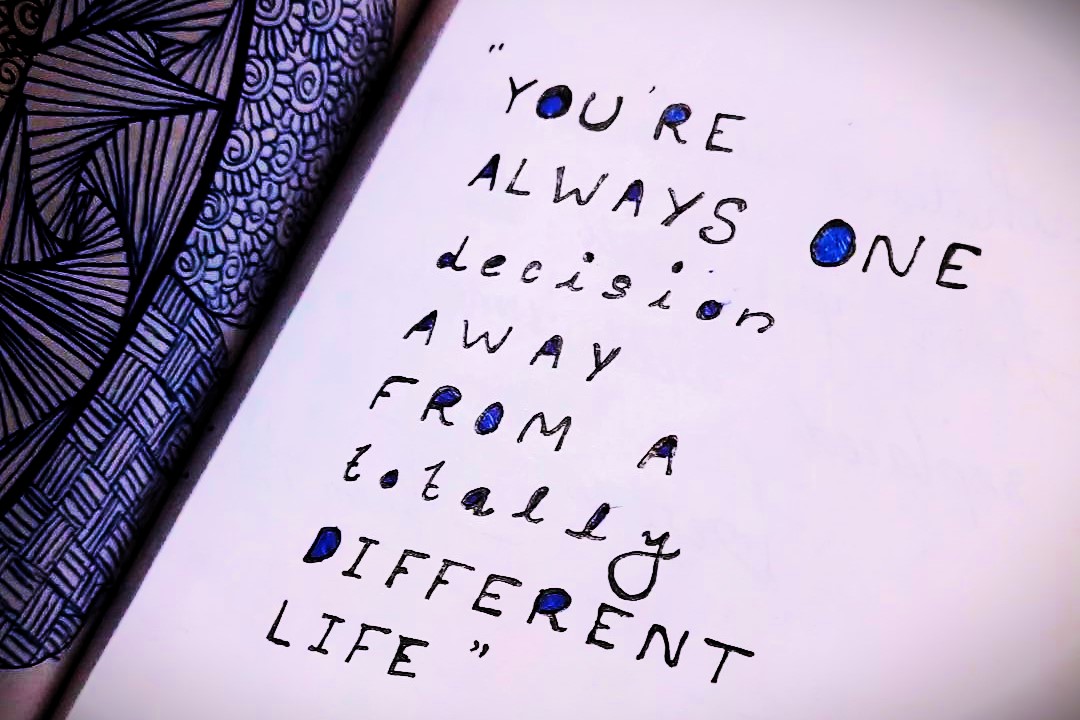 "
YOU'RE
ALWAYS ONE
decision
AWAY
FROM A
totally
DIFFERENT
LIFE"